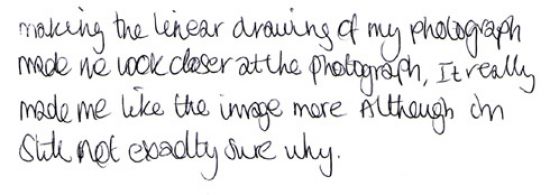 making the linear drawing of my photograph
made me look closer at the photograph, It really
made me like the image more Although im
still not exadlty sure why.